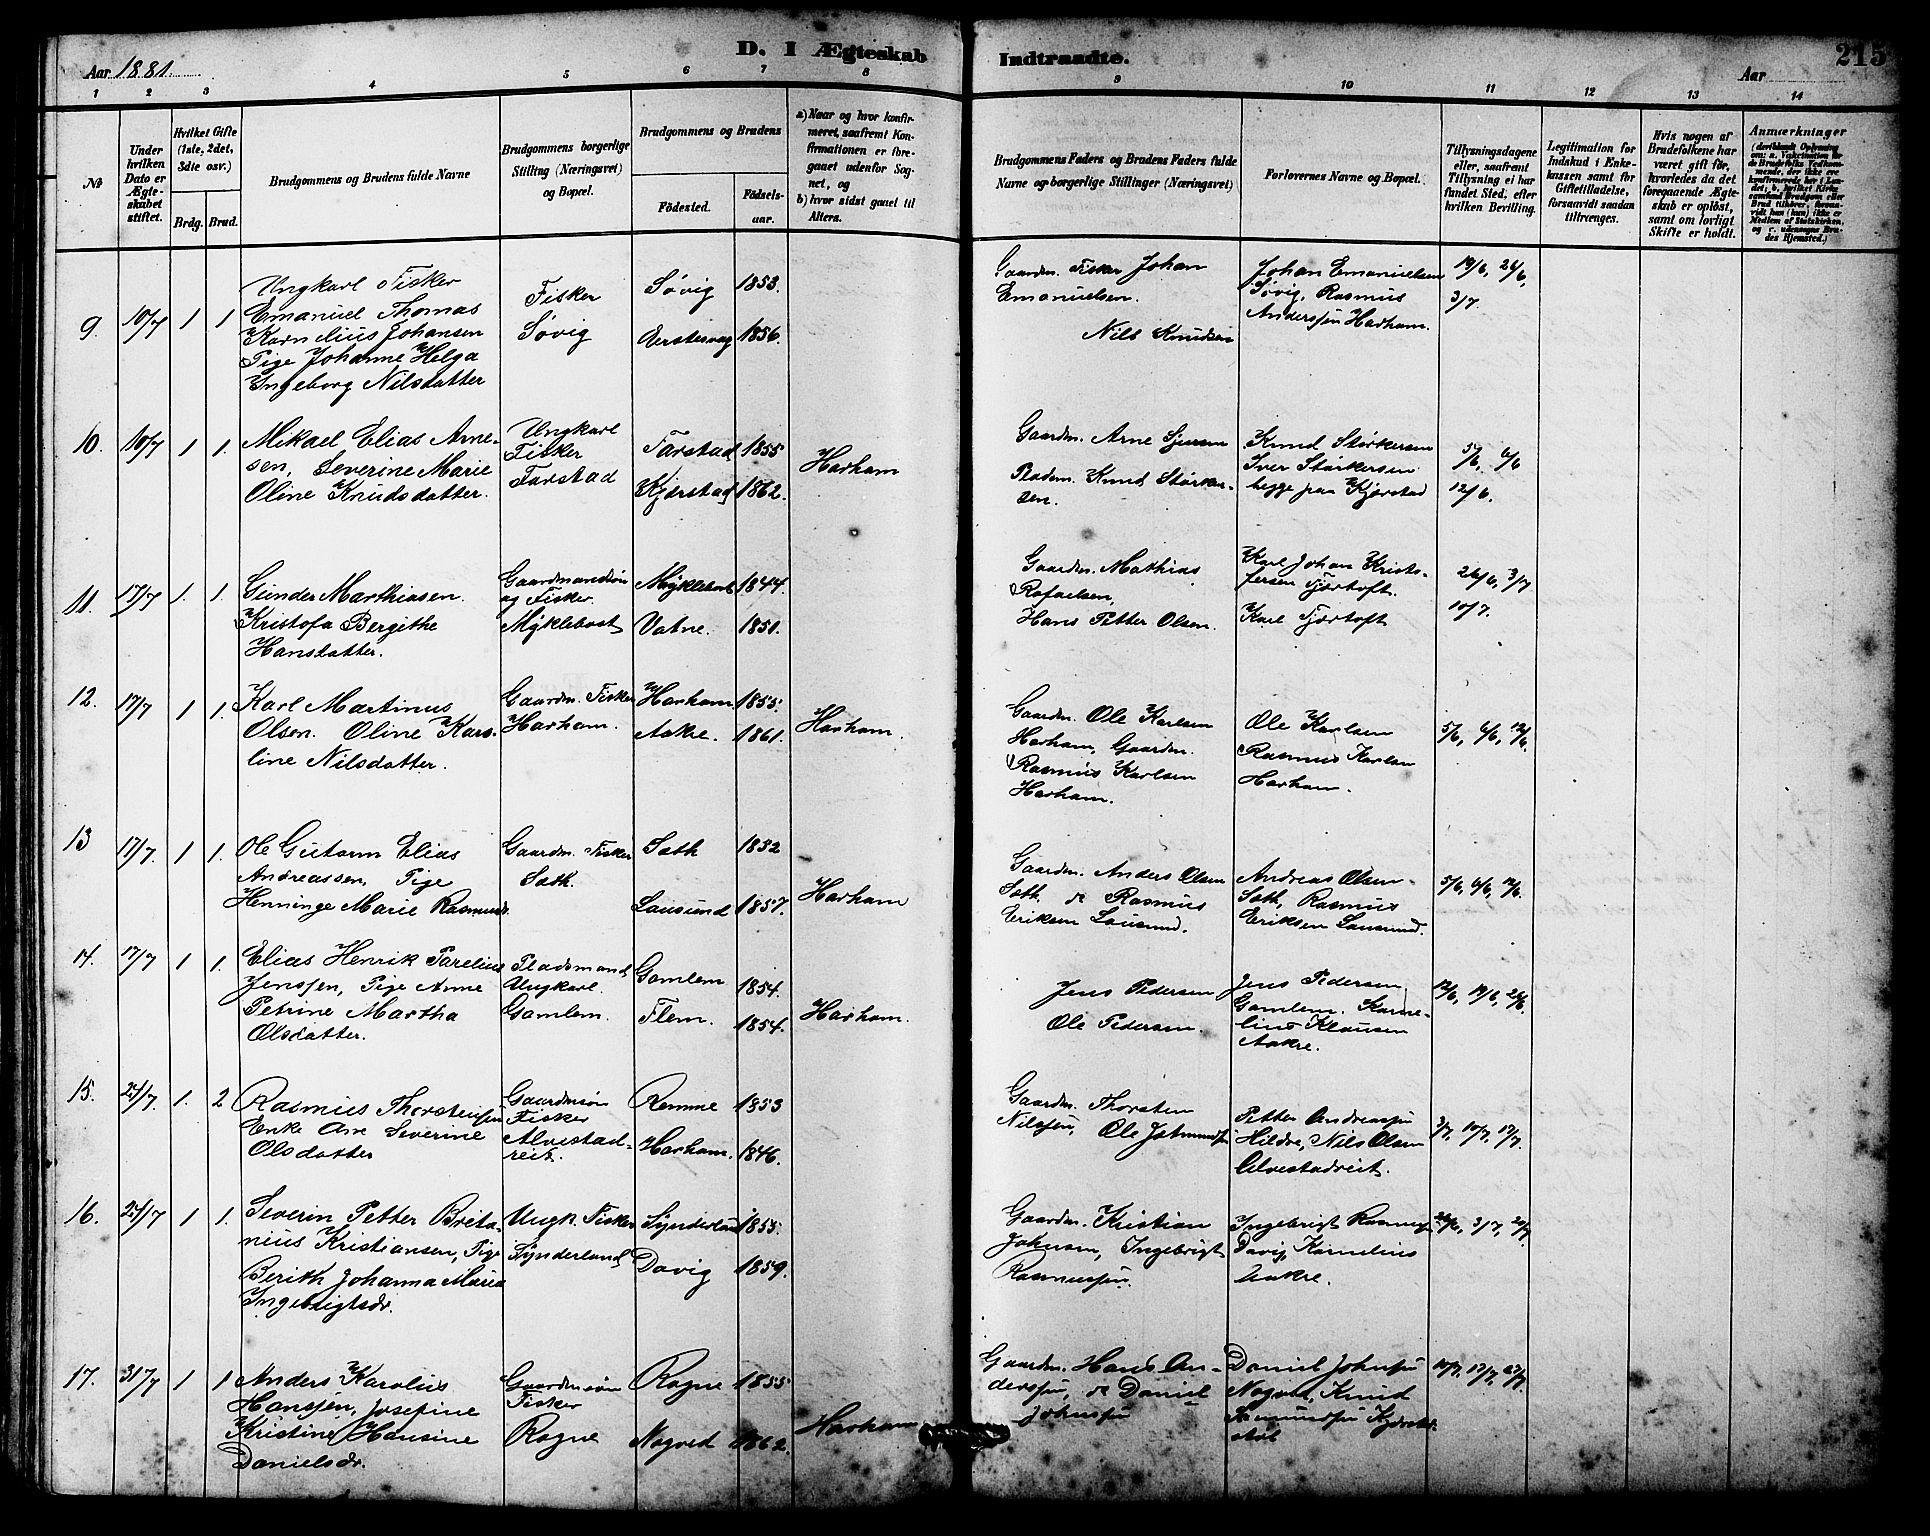 D. I Ægteskab
Indtraadte.
215
Aar 1881.
Aar
1 2 3 4 5 6 7 8
9 10 11 12 13 14
№
Under
hvilken
Dato er
Ægte-
skabet
stiftet.
Hvilket Gifte
(1ste, 2det,
3die osv.)
Brdg. Brud.
Brudgommens og Brudens fulde Navne
Brudgommens borgerlige
Stilling (Næringsvei)
og Bopæl.
Brudgommens og Brudens
Fødested.
Fødsels-
aar.
a) Naar og hvor konfir-
meret, saafremt Kon-
firmationen er fore-
gaaet udenfor Sog-
net, og
b) hvor sidst gaaet til
Alters.
Brudgommens Faders og Brudens Faders fulde
Navne og borgerlige Stillinger (Næringsvei)
Forlovernes Navne og Bopæl.
Tillysningsdagene
eller, saafremt
Tillysning ei har
fundet Sted, efter
hvilken Bevilling.
Legitimation for
Indskud i Enke-
kassen samt for
Giftetilladelse,
forsaavidt saadan
tiltrænges.
Hvis nogen af
Brudefolkene har
været gift før,
hvorledes da det
foregaaende Ægte-
skab er opløst,
samt om lovligt
Skifte er holdt.
Anmærkninger
9. 10/7 1 1
Ungkarl Fisker
Emanuel Thomas
Kornelius Johansen
Pige Johanne Helga
Ingeborg Nilsdatter
Fisker
Søvig
Søvig 1853.
1856.
Gaardm. Fisker Johan
Emanuelsen.
Nils Knudsen
Johan Emanuelsen
Søvig, Rasmus
Anderssøn Harham.
19/6, 26/6,
3/7.
10. 10/7 1 1.
Mikael Elias Arne-
sen, Severine Marie
Oline Knudsdatter.
Ungkarl
Fisker
Farstad
Farstad 1855
Kjerstad 1862.
Harham
Gaardm. Arne Sjursen
Pladsm. Knud Størker-
sen.
Knud Størkersen
Iver Størkersen
begge paa Kjerstad
5/6, 6/6
12/6.
11. 17/7 1. 1.
Gunder Marthiasen.
Kristofa Bergithe
Hansdatter.
Gaardmandssøn
og Fisker.
Myklebost
Myklebost 1844.
Vatne. 1851.
Gaardm. Mathias
Rafaelsen,
Hans Petter Olsen.
Karl Johan Kristo-
fersen Fjørtoft.
Karl Fjørtoft
26/6, 3/7
10/7.
12. 17/7 1 1.
Karl Martinus
Olsen. Oline Karo-
line Nilsdatter.
Gaardm. Fisker
Harham.
Harham 1855.
Aakre. 1861.
Harham.
Gaardm. Ole Karlsen
Harham, Gaardm.
Rasmus Karlsen
Harham.
Ole Karlsen
Rasmus Karlsen
Harham.
5/6, 6/6, 12/6.
13 17/7. 1 1.
Ole Gutorm Elias
Andreassen, Pige
Henninge Marie Rasmusd.
Gaardm. Fisker
Sæth.
Sæth 1852
Lausund 1857.
Harham
Gaardm. Anders Olsen
Sæth. & Rasmus
Eriksen Lausund.
Andreas Olsen
Sæth, Rasmus
Eriksen Lausund.
5/6, 6/6, 12/6.
14. 17/7 1 1.
Elias Henrik Parelius
Jenssen, Pige Anne
Petrine Martha
Olsdatter.
Pladsmand
Ungkarl.
Gamlem.
Gamlem 1854.
Flem. 1854.
Harham.
Jens Pedersen
Ole Pedersen.
Jens Pedersen
Gamlem. Korne-
lius Klausen
Aakre.
12/6, 19/6, 26/6.
15. 24/7. 1. 2
Rasmus Thorstenssøn
Enke Ane Severine
Olsdatter
Gaardmsøn
Fisker
Alvestad-
reit.
Remme 1853
Harham. 1846.
Gaardm. Thorsten
Nilssøn, Ole
Petter Andreassøn
Hildre, Nils Olsen
Alvestadreit.
3/7, 10/7, 17/7.
16. 24/7 1 1.
Severin Petter Brita-
nius Kristiansen, Pige
Berith Johanna Maria
Ingebrigtsdr.
Ungk. Fisker
Synderland
Synderland 1855.
Davig 1859.
Gaardm. Kristian
Johnsen, Ingebrigt
Rasmussøn.
Ingebrigt Rasmussøn
Davig, Kornelius
Aakre.
26/6, 3/7,
17. 31/7 1 1
Anders Karolius
Hanssøn, Josefine
Kristine Hansine
Danielsdr.
Gaardmsøn
Fisker
Rogne
Rogne 1855
Nogved 1862.
Harham
Gaardm. Hans An-
derssøn, & Daniel
Johnssøn
Daniel Johnssøn
Nogved, Knud
10/7, 17/7,